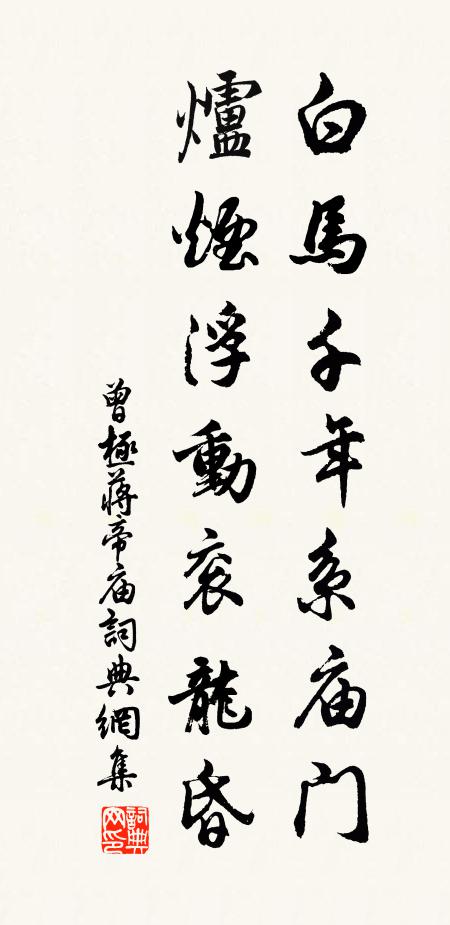 白馬千年系庙门
爐煙浮動衮龍昏
曾極蒋帝庙詞典網集
詞典网印